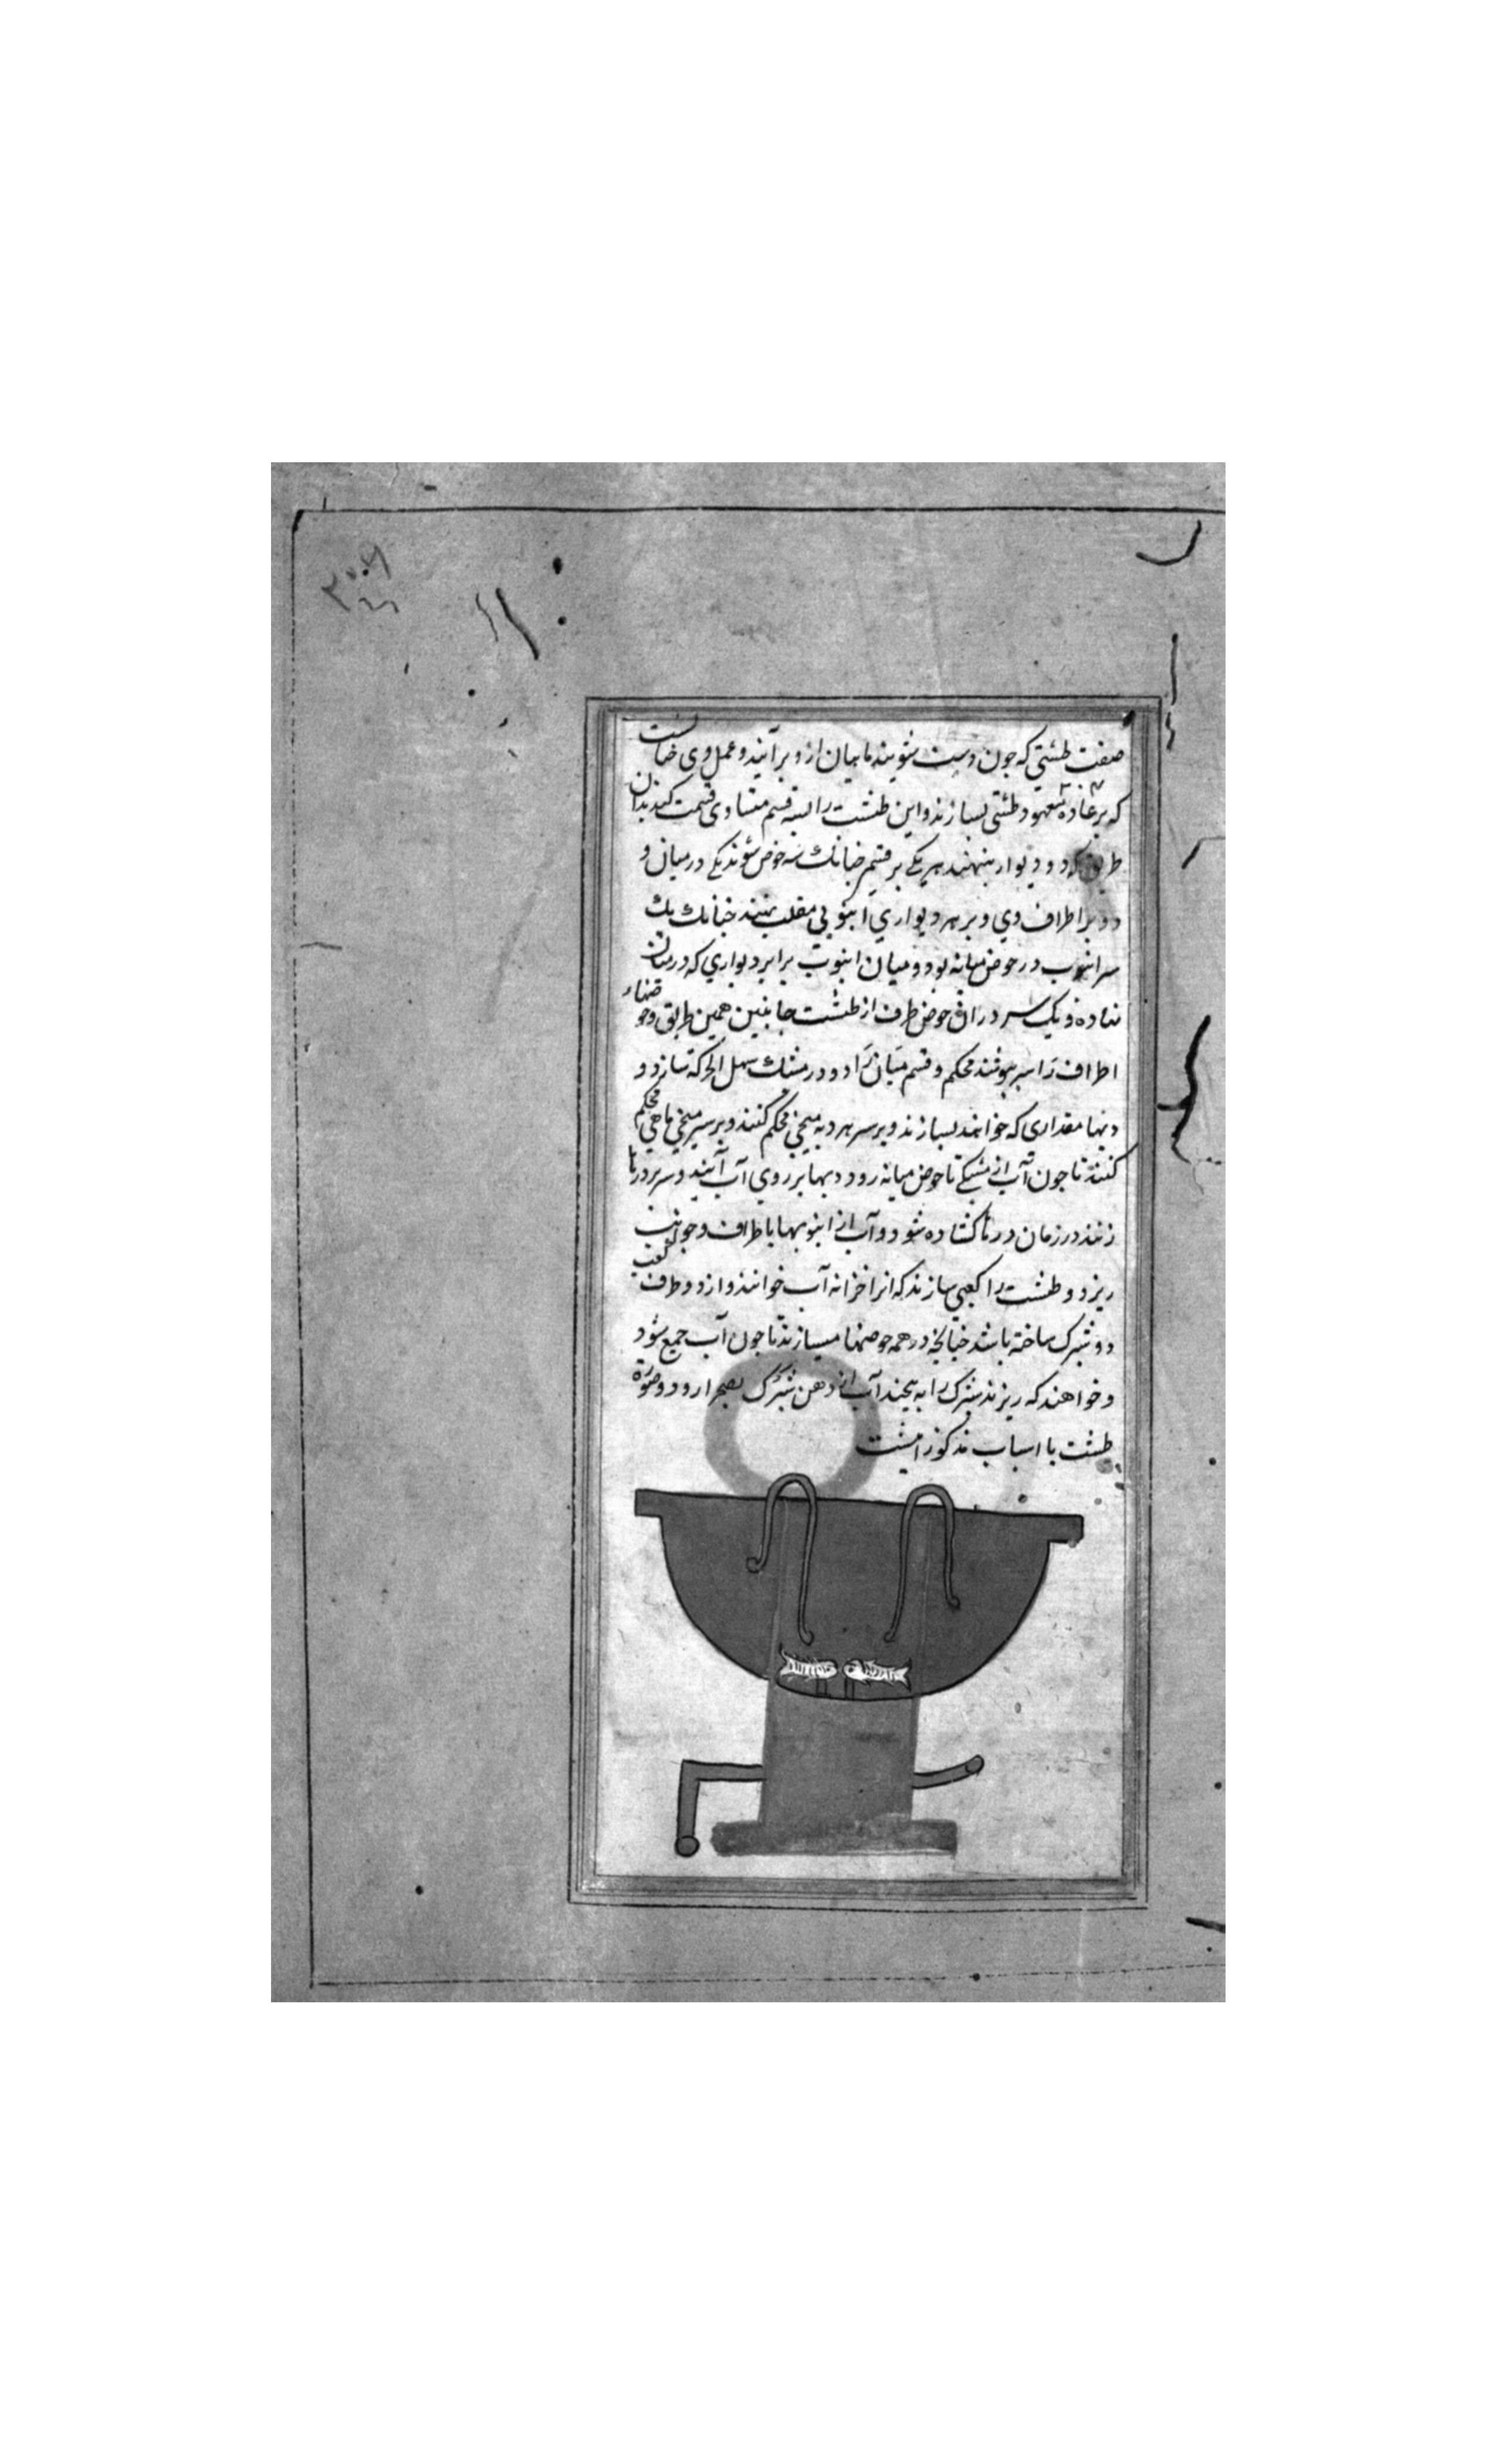 صفت طشتی که چون دست شویند ماهیان ازو برآیند و عمل وی چنانست
که بر عاده معهود طشتی بسازند و این طشت را بسه قسم متساوی قسمت کنند بدان
طریق که دو دیوار بنهند هر یکی بر قسم چنانک سه حوض شوند یکی در میان و
دو بر اطراف وی و بر هر دیواری انبوبی مقلب نهند چنانک یک
سر انبوب در حوض میانه بود و میان انبوب برابر دیواری که در میان
نهاده و یک سر در آن حوض طرف از طشت جانبین همین طریق و حوضهاء
اطراف را سر بپوشند محکم و قسم میان را دو در مشبک سهل الحرکة سازد و
دبها مقداری که خواهند بسازند و بر سر هر دبه میخی محکم کنند و بر سر میخی ماهی محکم
کنند تا چون آب از مشبکی تا حوض میانه رود دبها بر روی آب آیند و سر در درها
زنند در زمان درها گشاده شود و آب از انبوبها باطراف و جوانب
ریزد و طشت را کعبی سازند که انرا خزانه آب خوانند و از دو طرف کعب
دو شیرک ساخته باشد چنانچه در همه حوضها میسازند تا چون آب جمع شود
و خواهند که ریزند شیرک را به پیچند آب از دهن شیرک بصحرا رود و صورة
طشت با اسباب مذکور اینست